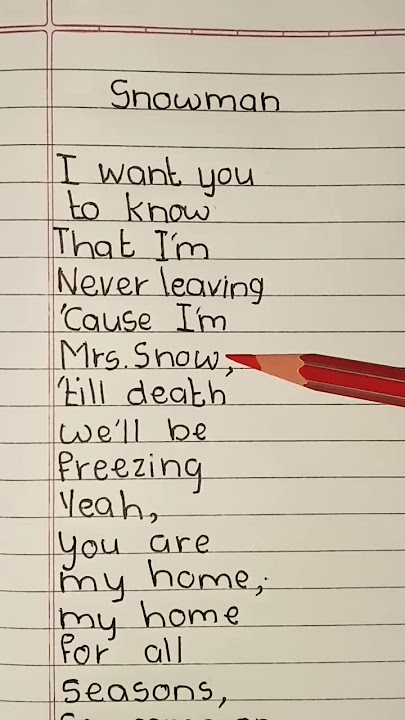 Snowman
I want you
to know
That I'm
Never leaving
'Cause I'm
Mrs. Snow,
'till death
we'll be
freezing
Yeah,
you are
my home,
my home
for all
seasons,